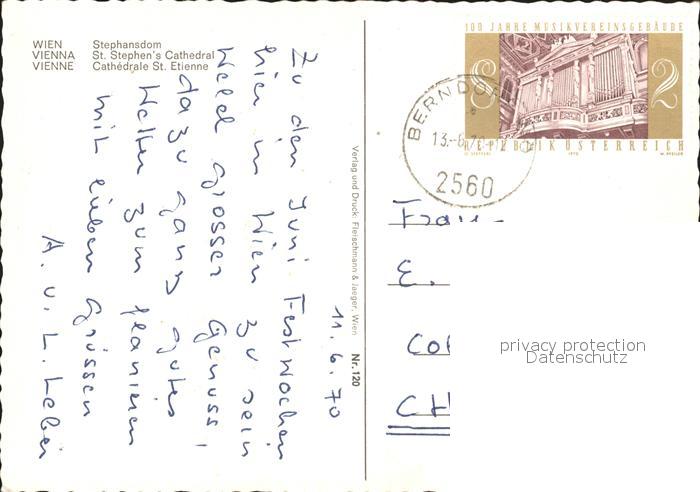 WIEN Stephansdom
VIENNA St. Stephen's Cathedral
VIENNE Cathédrale St. Etienne
11.6.70
Zu den Juni Festwochen
hier in Wien zu sein
Welch grosser Genuss,
dazu ganz gutes
Wetter zum flanieren
mit lieben Grüssen
A. u. L. Leber
Verlag und Druck: Fleischmann & Jaeger, Wien Nr. 120
100 JAHRE MUSIKVEREINSGEBÄUDE
S 2
REPUBLIK ÖSTERREICH
1970
BERNDORF
13.-6.70
2560
Frau
E.
Col
CH
privacy protection
Datenschutz